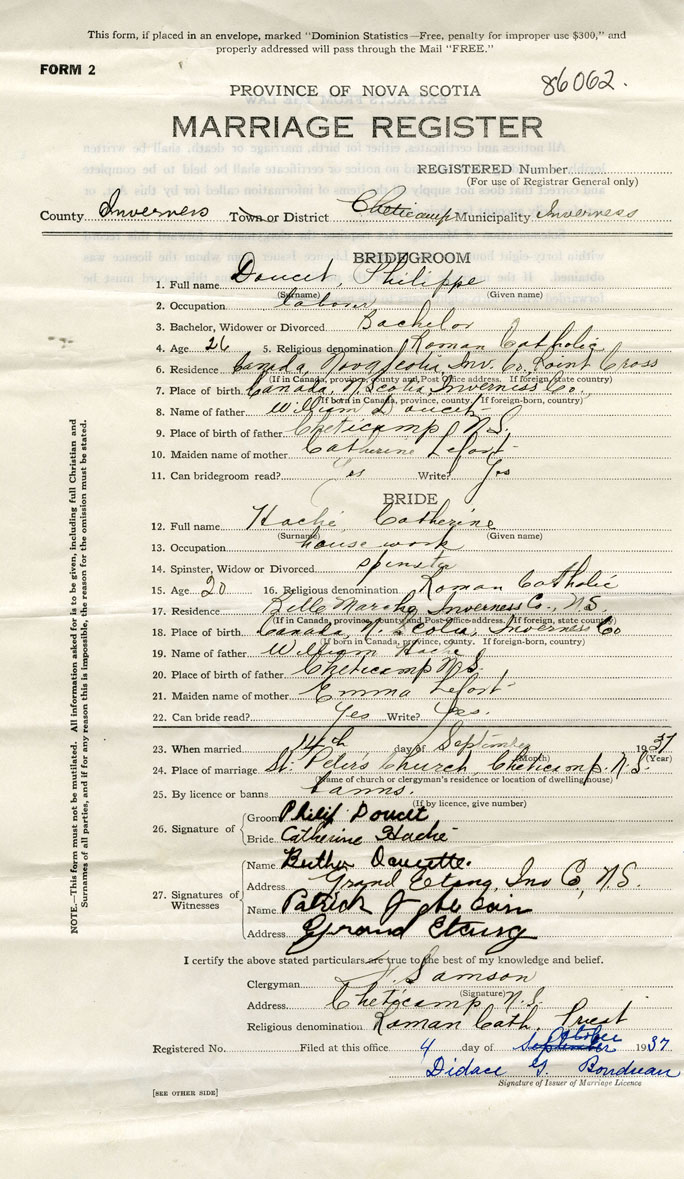 This form, if placed in an envelope, marked "Dominion Statistics—Free, penalty for improper use $300," and
properly addressed will pass through the Mail "FREE."
FORM 2
86062.
PROVINCE OF NOVA SCOTIA
MARRIAGE REGISTER
REGISTERED Number
(For use of Registrar General only)
County Inverness Town or District Cheticamp Municipality Inverness
BRIDEGROOM
1. Full name Doucet, Philippe
(Surname) (Given name)
2. Occupation laborer
3. Bachelor, Widower or Divorced Bachelor
4. Age 26 5. Religious denomination Roman Catholic
6. Residence Canada, Nova Scotia, Inv. Co. Point Cross
(If in Canada, province, county and Post Office address. If foreign, state country)
7. Place of birth Canada, N. Scotia, Inverness Co.
(If born in Canada, province, county. If foreign-born, country)
8. Name of father William Doucet
9. Place of birth of father Cheticamp N.S.
10. Maiden name of mother Catherine Lefort
11. Can bridegroom read? Yes Write? Yes
BRIDE
12. Full name Haché, Catherine
(Surname) (Given name)
13. Occupation house work
14. Spinster, Widow or Divorced spinster
15. Age 20 16. Religious denomination Roman Catholic
17. Residence Belle Marche, Inverness Co., N.S.
(If in Canada, province, county and Post Office address. If foreign, state country)
18. Place of birth Canada, N. Scotia, Inverness Co
(If born in Canada, province, county. If foreign-born, country)
19. Name of father William Haché
20. Place of birth of father Cheticamp N.S.
21. Maiden name of mother Emma Lefort
22. Can bride read? Yes Write? Yes.
23. When married 14th day of September 1937
(Month) (Year)
24. Place of marriage St. Peter's Church, Cheticamp, N.S.
(Name of church or clergyman's residence or location of dwelling house)
25. By licence or banns banns.
(If by licence, give number)
26. Signature of
Groom Philip Doucet
Bride Catherine Haché
27. Signatures of Witnesses
Name Doucette.
Address Grand Etang, Inv Co, N.S.
Name Patrick J
Address Grand Etang
I certify the above stated particulars are true to the best of my knowledge and belief.
Clergyman Samson
(Signature)
Address Cheticamp N.S.
Religious denomination Roman Cath. Priest
Registered No. Filed at this office 4 day of September October 1937
Didace G. Boudreau
Signature of Issuer of Marriage Licence
[SEE OTHER SIDE]
NOTE.—This form must not be mutilated. All information asked for is to be given, including full Christian and
Surnames of all parties, and if for any reason this is impossible, the reason for the omission must be stated.